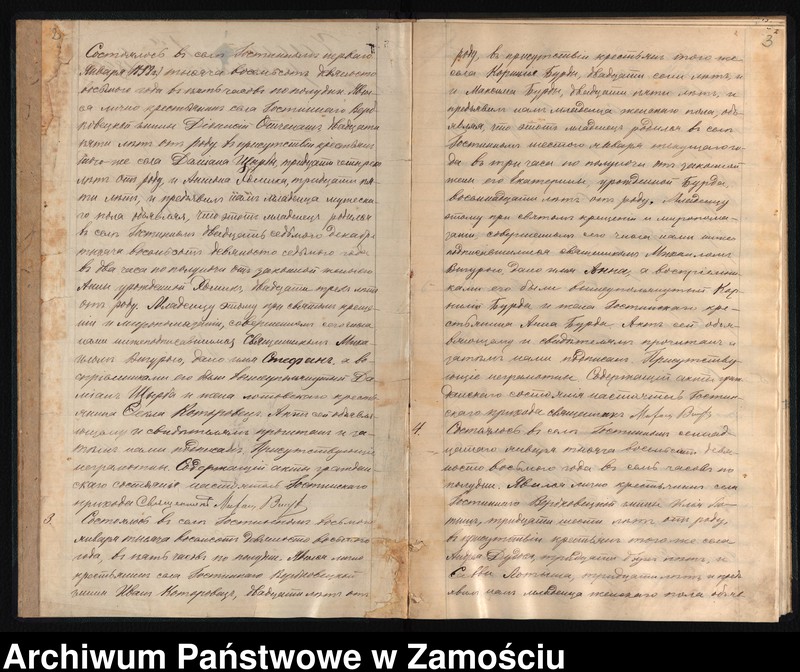 2
Состоялось въ селѣ Гостинномъ перваго
Января (1898 г.) тысяча восемьсотъ девяносто
восьмого года въ пять часовъ по полудни. Яви-
ся лично крестьянинъ села Гостиннаго
гмины Діонисій двадцати
пяти лѣтъ отъ роду въ присутствіи крестьянъ
того же села Даміана Щирбы, тридцати четырехъ
лѣтъ отъ роду, и Антона тридцати пя-
ти лѣтъ, и предъявилъ намъ младенца мужеска-
го пола объявляя, что этотъ младенецъ родился
въ селѣ Гостинномъ двадцать седьмого декабря
тысяча восемьсотъ девяносто седьмого года
въ два часа по полудни отъ законной жены его
Анны урожденной двадцати трехъ лѣтъ
отъ роду. Младенцу этому при святомъ креще-
ніи и мѵропомазаніи, совершенномъ сего числа
нами нижеподписавшимся Священникомъ Миха-
иломъ дано имя Стефанъ, а вос-
пріемниками его были вышеупомянутый Да-
міанъ Щирба и жена крестья-
нина Которовецъ. Актъ сей объявля-
ющему и свидѣтелямъ прочитанъ и за-
тѣмъ нами подписанъ. Присутствующіе
неграмотны. Содержащій акты граждан-
скаго состоянія настоятель Гостиннскаго
прихода Священникъ
3. Состоялось въ селѣ Гостинномъ восьмого
января тысяча восемьсотъ девяносто восьмого
года, въ пять часовъ по полудни. Явился лично
крестьянинъ села Гостиннаго
гмины Иванъ Которовецъ, двадцати лѣтъ отъ
3
роду, въ присутствіи крестьянъ того же
села Корнилія Бурды, двадцати семи лѣтъ, и
и Максима Бурды, двадцати пяти лѣтъ, и
предъявилъ намъ младенца женскаго пола, объ-
являя, что этотъ младенецъ родился въ селѣ
Гостинномъ шестого января текущаго го-
да въ три часа по полуночи отъ законной
жены его Екатерины, урожденной Бурда,
восемнадцати лѣтъ отъ роду. Младенцу
этому при святомъ крещеніи и мѵропома-
заніи, совершенномъ сего числа нами ниже-
подписавшимся священникомъ Михаиломъ
дано имя Анна, а воспріемни-
ками его были вышеупомянутый Кор-
нилій Бурда и жена Гостинскаго кре-
стьянина Анна Бурда. Актъ сей объя-
вляющему и свидѣтелямъ прочитанъ и
затѣмъ нами подписанъ. Присутству-
ющіе неграмотны. Содержащій акты граж-
данскаго состоянія настоятель Гостин-
скаго прихода священникъ
4. Состоялось въ селѣ Гостинномъ
января тысяча восемьсотъ девя-
носто восьмого года въ семь часовъ по
полудни. Явился лично крестьянинъ села
Гостиннаго гмины Илія
тридцати шести лѣтъ отъ роду,
въ присутствіи крестьянъ того же села
Андрея тридцати лѣтъ, и
Саввы тридцати лѣтъ и предъ-
явилъ намъ младенца женскаго пола объяв-
Archiwum Państwowe w Zamościu